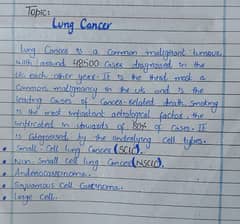 Topic:
Lung Cancer
Lung Cancer is a common malignant tumour
with around 48500 cases diagnosed in the
UK each other year. It is the third most
common malignancy in the UK and is the
leading causes of cancer-related death. Smoking
is the most important aetiological factor. The
implicated in upwards of 80% of cases. It
is categorised by the underlying cell types.
• Small Cell lung Cancer (SCLC).
• Non-Small Cell lung Cancer (NSCLC).
• Andenocarcinoma.
• Squamous Cell Carcinoma.
• Large Cell.